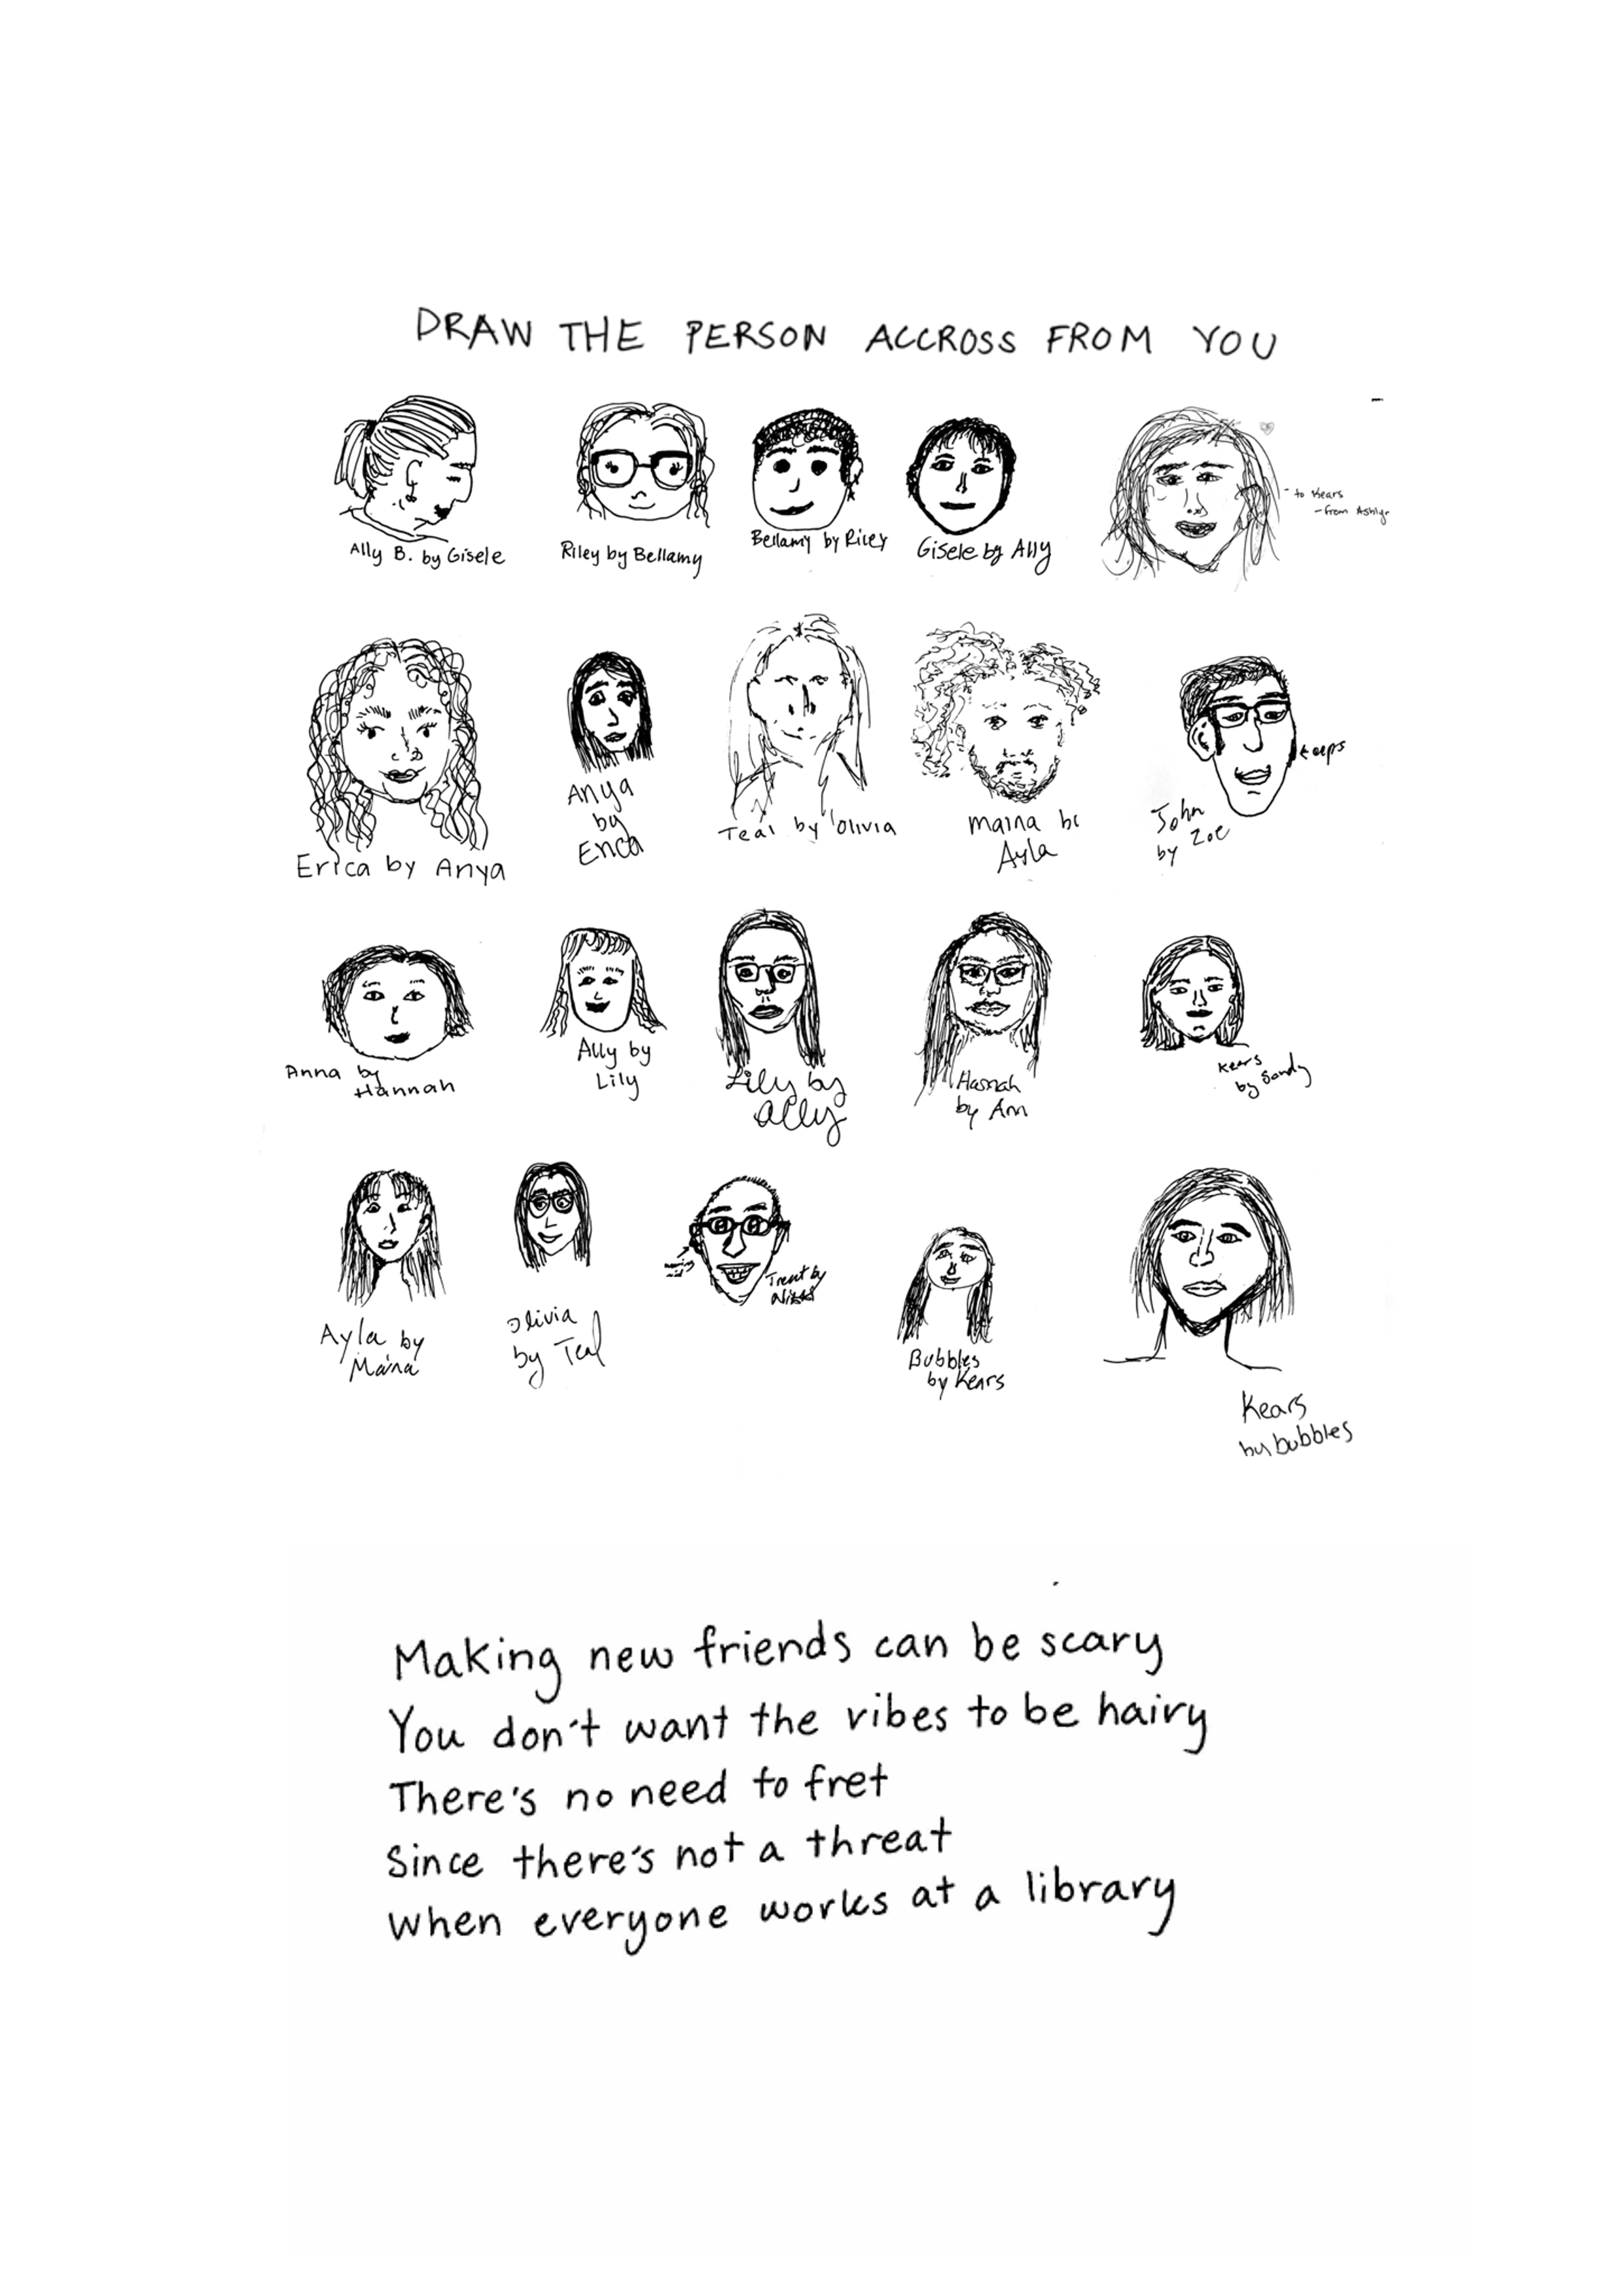 DRAW THE PERSON ACCROSS FROM YOU
Ally B. by Gisele
Riley by Bellamy
Bellamy by Riley
Gisele by Ally
- to Kears
- from Ashlyn
Erica by Anya
Anya
by
Erica
Teal by Olivia
Maina by
Ayla
John
by Zoe
oops
Anna by
Hannah
Ally by
Lily
Lily by
Ally
Hannah
by Ann
Kears
by Sandy
Ayla by
Maina
Olivia
by Teal
Trent by
Bubbles
by Kears
Kears
by bubbles
Making new friends can be scary
You don't want the vibes to be hairy
There's no need to fret
Since there's not a threat
When everyone works at a library